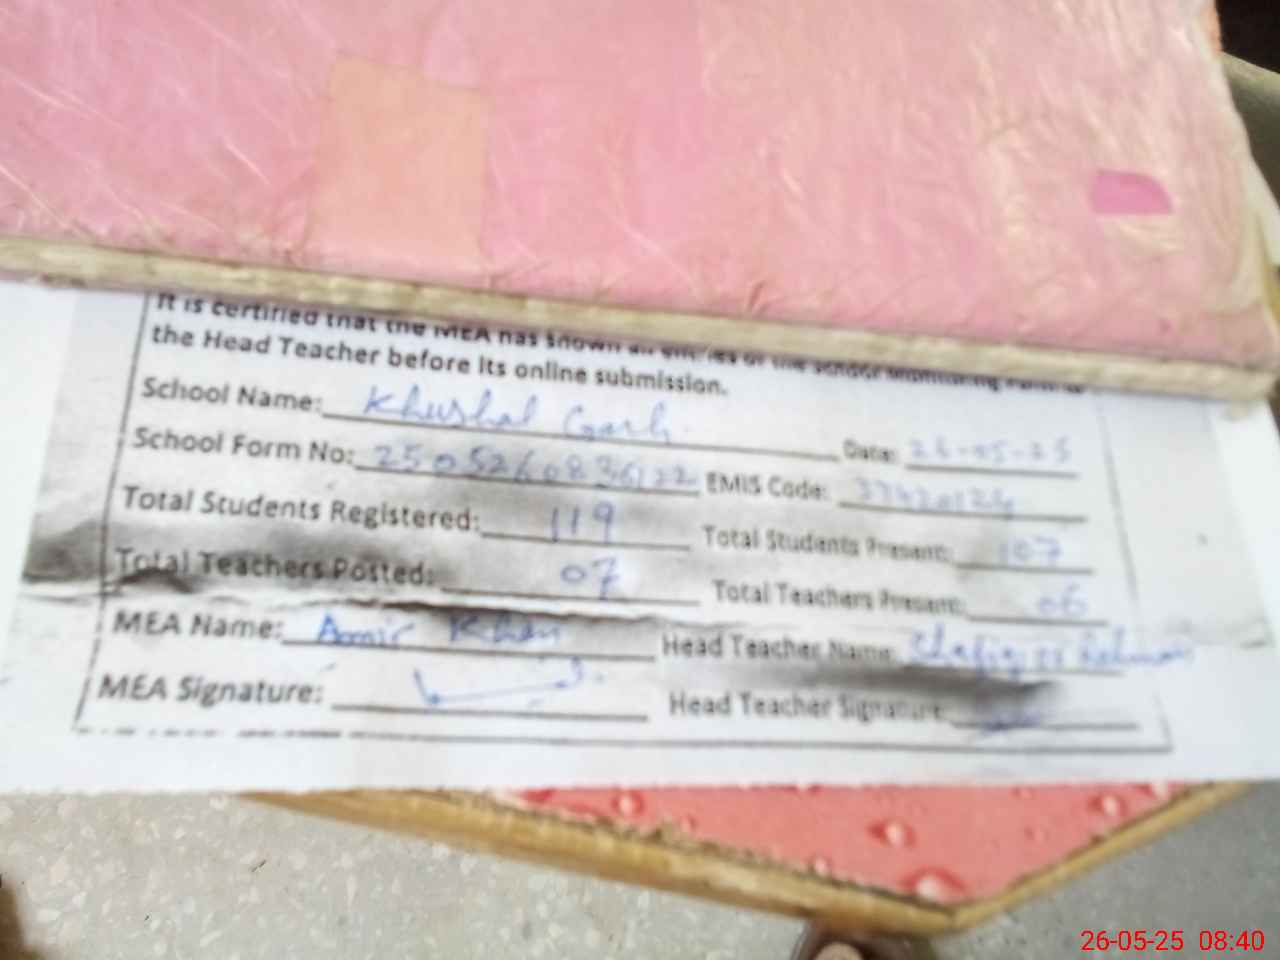 It is certified that the MEA has shown all entries of the School Monitoring Form to
the Head Teacher before its online submission.
School Name: Khushal Garh Date: 26-05-25
School Form No: 2505260836122 EMIS Code:
Total Students Registered: 119 Total Students Present: 107
Total Teachers Posted: 07 Total Teachers Present: 06
MEA Name: Amir Khan Head Teacher Name: Shafiq ur Rehman
MEA Signature: Head Teacher Signature:
26-05-25 08:40